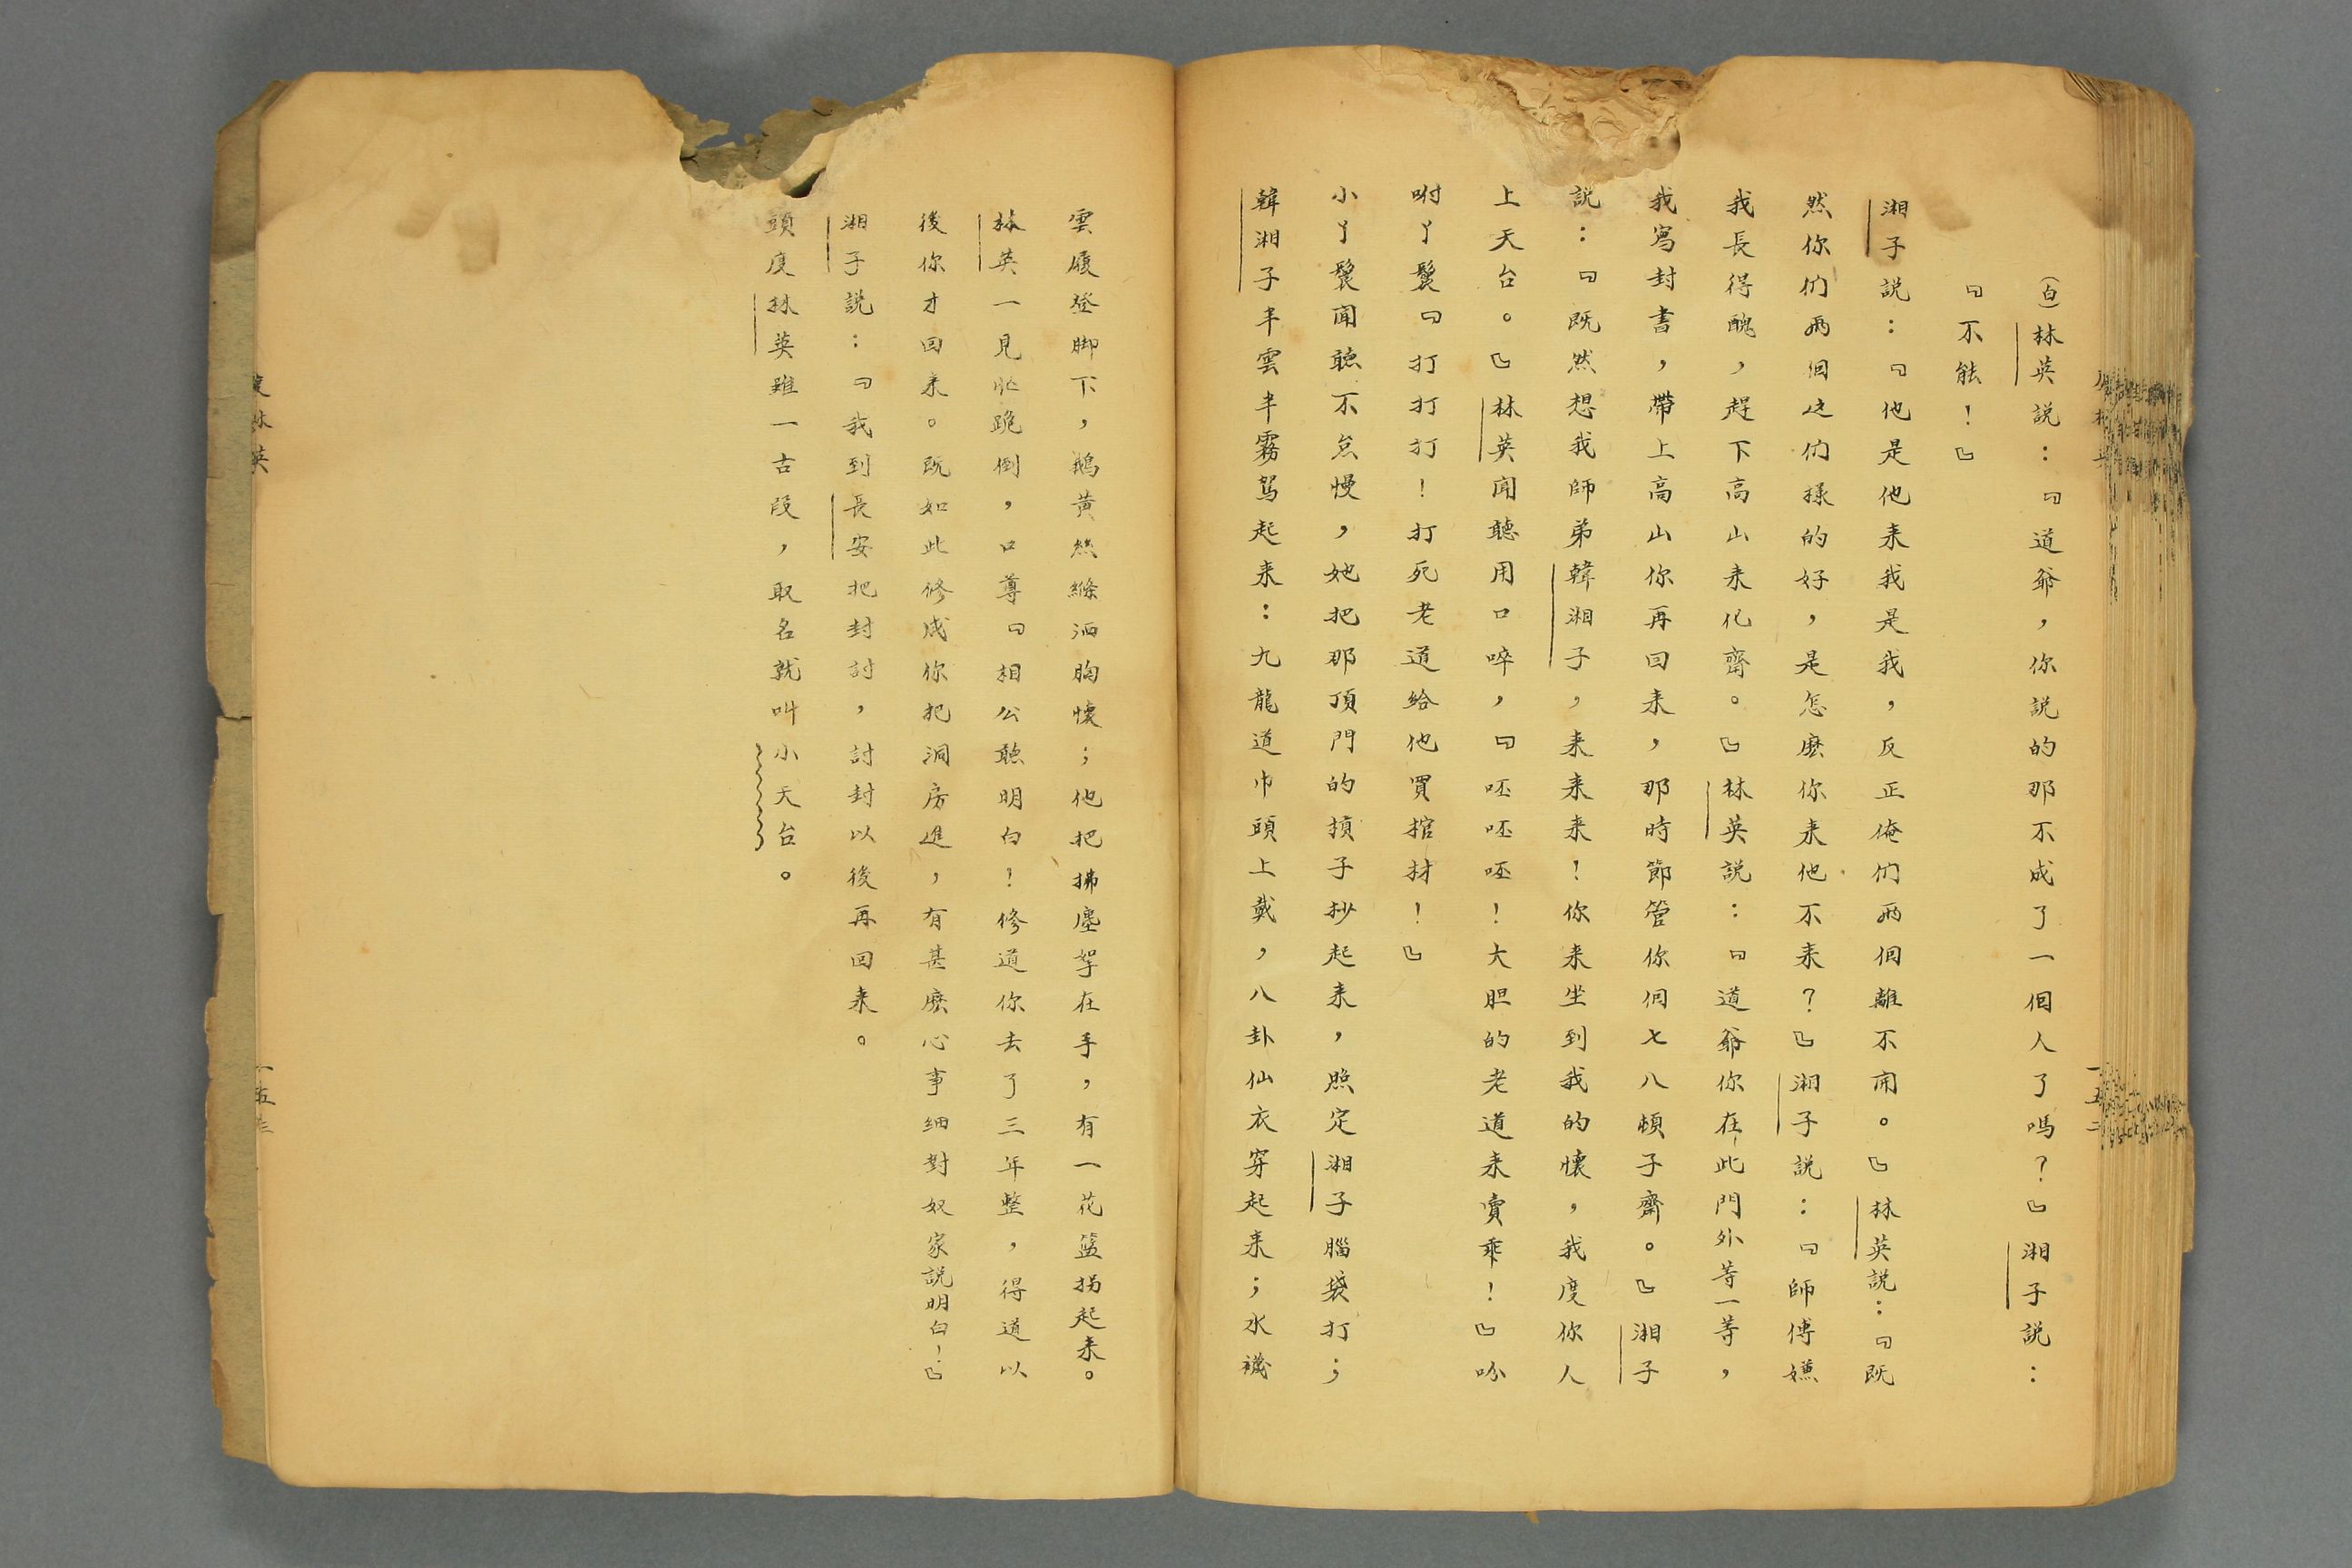 (白)林英説：『道爺，你説的那不成了一個人了嗎？』湘子説：
『不能！』
湘子説：『他是他来我是我，反正俺们兩個離不開。』林英説：『既
然你们兩個这们樣的好，是怎麼你来他不来？』湘子説：『師傅嫌
我長得醜，趕下高山来化齋。』林英説：『道爺你在此門外等一等，
我寫封書，帶上高山你再回来，那時節管你個七八頓子齋。』湘子
説：『既然想我師弟韓湘子，来来来！你来坐到我的懷，我度你人
上天台。』林英聞聽用口啐，『呸呸呸！大胆的老道来賣乖！』吩
咐丫鬟『打打打！打死老道給他買棺材！』
小丫鬟聞聽不怠慢，她把那頂門的槓子抄起来，照定湘子腦袋打；
韓湘子半雲半霧駕起来：九龍道巾頭上戴，八卦仙衣穿起来；水襪
雲履登脚下，鵝黃絲縧洒胸懷；他把拂塵拏在手，有一花籃拐起来。
林英一見忙跪倒，口尊『相公聽明白！修道你去了三年整，得道以
後你才回来。既如此修成你把洞房進，有甚麼心事細對奴家説明白！』
湘子説：『我到長安把封討，討封以後再回来。
頭度林英雖一古段，取名就叫小天台。
度林英
一五三
一五二